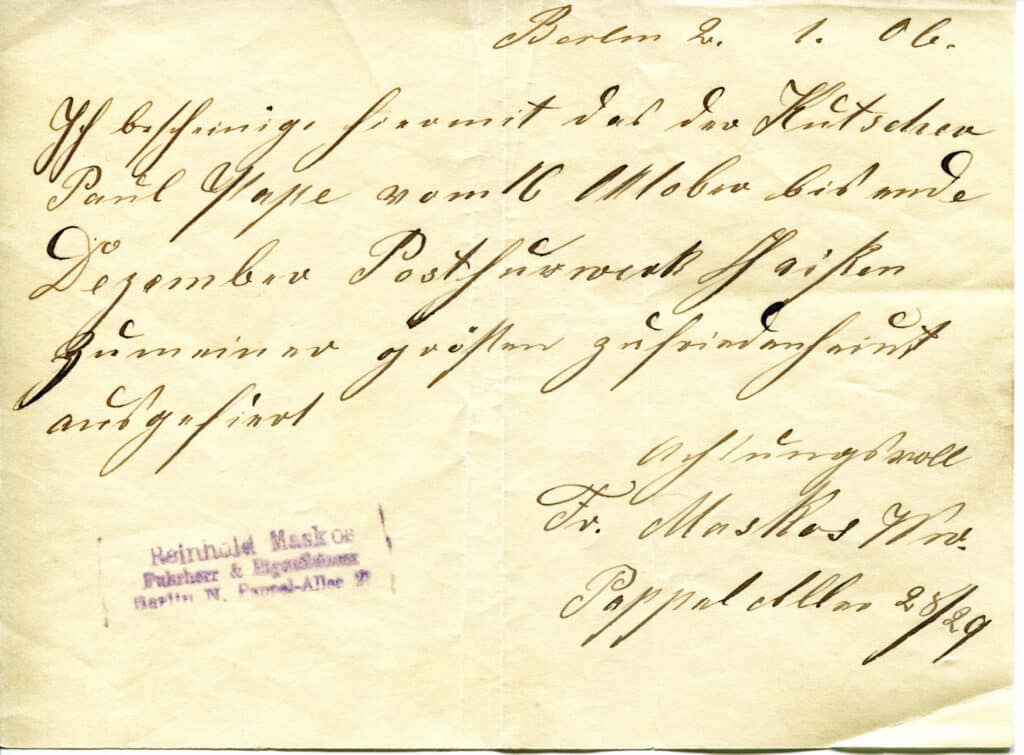 Berlin 2. 1. 06.
Ich bescheinige hiermit das der Kutscher
Paul Pape vom 16 Oktober bis ende
Dezember Postfurwerk
zu meiner größten zufriedenheint
ausgefiert
Achtungsvoll
Fr. Maskos Ww.
Pappel Allee 28/29
Reinhold Maskos
Fuhrherr &
Berlin N. Pappel-Allee